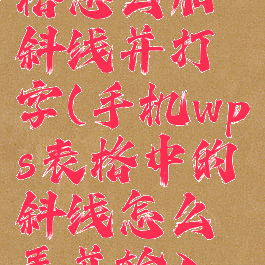 格怎么
斜线并打
字(手机wp
s表格中的
斜线怎么